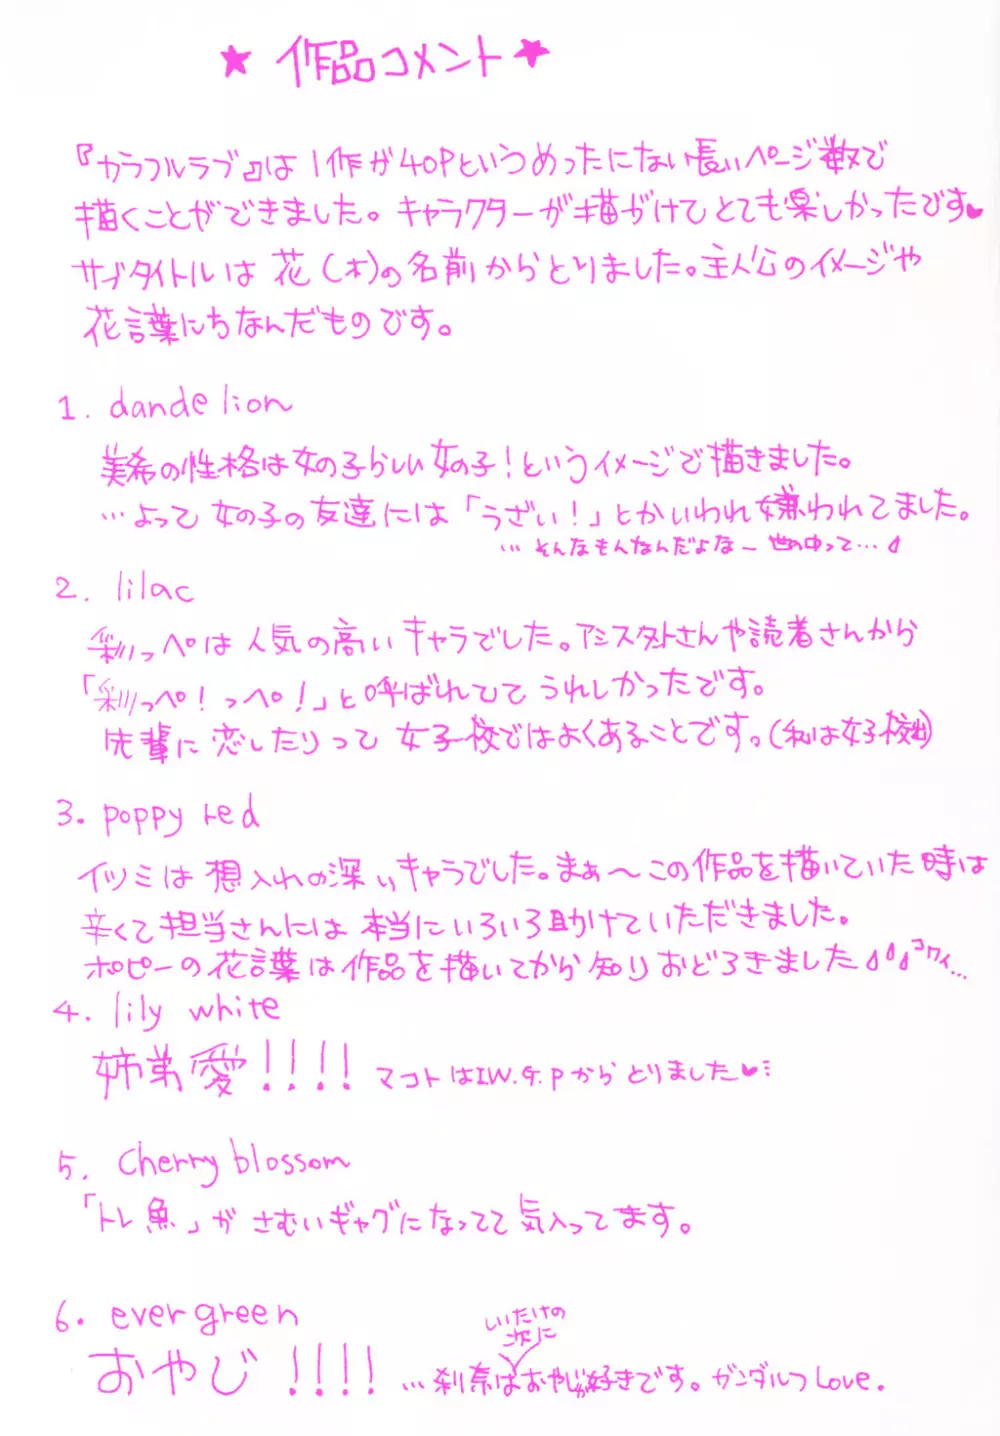 ★ 作品コメント ★
『カラフルラブ』は1作が40Pというめったにない長いページ数で
描くことができました。キャラクターが描かけてとても楽しかったです♥
サブタイトルは花(木)の名前からとりました。主人公のイメージや
花言葉にちなんだものです。
1. dandelion
美希の性格は女の子らしい女の子!というイメージで描きました。
…よって女の子の友達には「うざい!」とかいわれ嫌われてました。
…そんなもんなんだよなー世の中って…
2. lilac
彩っペは人気の高いキャラでした。アシスタントさんや読者さんから
「彩っペ!っペ!」と呼ばれてて うれしかったです。
先輩に恋したりって女子校ではよくあることです。(私は女子校出)
3. poppy red
イツミは想入れの深いキャラでした。まぁ〜この作品を描いていた時は
辛くて担当さんには本当にいろいろ助けていただきました。
ポピーの花言葉は作品を描いてから知りおどろきました コワイ…
4. lily white
姉弟愛!!!! マコトはI.W.G.Pからとりました♥
5. Cherry blossom
「トレ魚」がさむいギャグになってて気入ってます。
6. evergreen
おやじ!!!! …刹奈はいたけの次におやじが好きです。ガンダルフLove.